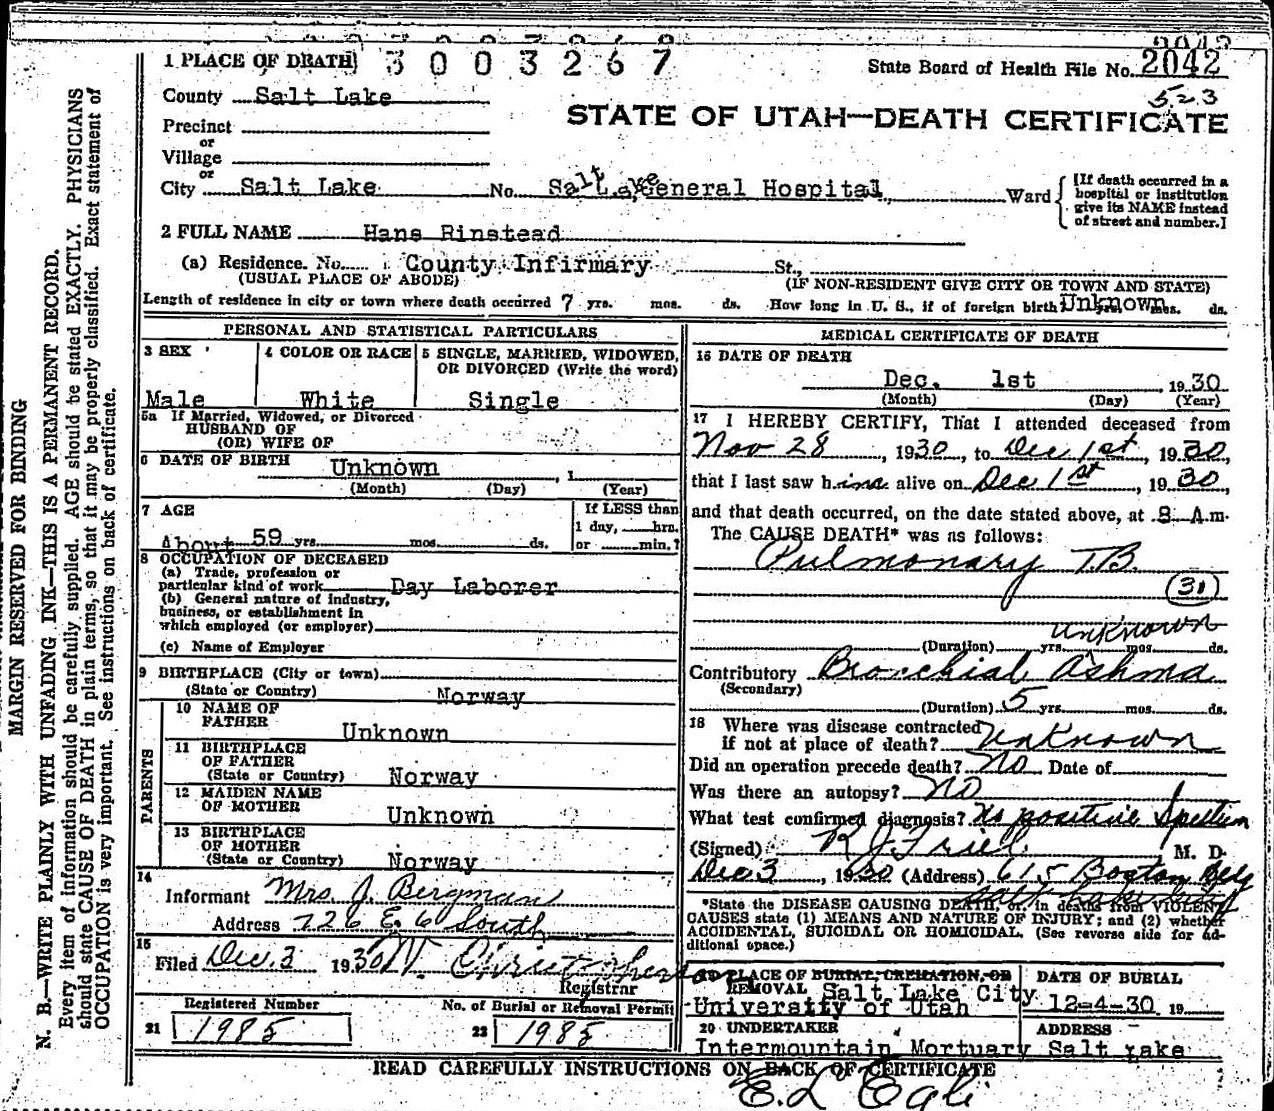 1 PLACE OF DEATH 3003267
State Board of Health File No. 2042
523
County Salt Lake
STATE OF UTAH—DEATH CERTIFICATE
Precinct
or
Village
or
City Salt Lake No. Salt Lake General Hospital, Ward
[If death occurred in a
hospital or institution
give its NAME instead
of street and number.]
2 FULL NAME Hans Rinstead
(a) Residence. No. County Infirmary St.,
(USUAL PLACE OF ABODE) (IF NON-RESIDENT GIVE CITY OR TOWN AND STATE)
Length of residence in city or town where death occurred 7 yrs. mos. ds. How long in U. S., if of foreign birth Unknown yrs. mos. ds.
PERSONAL AND STATISTICAL PARTICULARS
3 SEX 4 COLOR OR RACE 5 SINGLE, MARRIED, WIDOWED,
OR DIVORCED (Write the word)
Male White Single
5a If Married, Widowed, or Divorced
HUSBAND OF
(OR) WIFE OF
6 DATE OF BIRTH Unknown , 1
(Month) (Day) (Year)
7 AGE If LESS than
1 day, hrs.
About 59 yrs. mos. ds. or min.?
8 OCCUPATION OF DECEASED
(a) Trade, profession or
particular kind of work Day Laborer
(b) General nature of industry,
business, or establishment in
which employed (or employer)
(c) Name of Employer
9 BIRTHPLACE (City or town)
(State or Country) Norway
PARENTS
10 NAME OF
FATHER Unknown
11 BIRTHPLACE
OF FATHER
(State or Country) Norway
12 MAIDEN NAME
OF MOTHER Unknown
13 BIRTHPLACE
OF MOTHER
(State or Country) Norway
14
Informant Mrs. J. Bergman
Address 726 E 6 South
15
Filed Dec. 3 1930
Registrar
Registered Number No. of Burial or Removal Permit
21 1985 22 1985
MEDICAL CERTIFICATE OF DEATH
16 DATE OF DEATH
Dec. 1st , 1930
(Month) (Day) (Year)
17 I HEREBY CERTIFY, That I attended deceased from
Nov 28 , 1930, to Dec 1st, 1930,
that I last saw him alive on Dec 1st, 1930,
and that death occurred, on the date stated above, at 8 A.m.
The CAUSE DEATH* was as follows:
Pulmonary T.B.
31
unknown
(Duration) yrs. mos. ds.
Contributory Bronchial Ashma
(Secondary)
(Duration) 5 yrs. mos. ds.
18 Where was disease contracted
if not at place of death? Unknown
Did an operation precede death? No Date of
Was there an autopsy? No
What test confirmed diagnosis? positive
(Signed) R J Friel M. D.
Dec 3, 1930 (Address) 615 Boston Bldg
*State the DISEASE CAUSING DEATH, or, in deaths from VIOLENT
CAUSES state (1) MEANS AND NATURE OF INJURY; and (2) whether
ACCIDENTAL, SUICIDAL OR HOMICIDAL. (See reverse side for ad-
ditional space.)
PLACE OF BURIAL, CREMATION, OR DATE OF BURIAL
REMOVAL Salt Lake City
University of Utah 12-4-30 19
20 UNDERTAKER ADDRESS
Intermountain Mortuary Salt Lake
READ CAREFULLY INSTRUCTIONS ON BACK OF CERTIFICATE
E. L. Egli
MARGIN RESERVED FOR BINDING
N. B.—WRITE PLAINLY WITH UNFADING INK—THIS IS A PERMANENT RECORD.
Every item of information should be carefully supplied. AGE should be stated EXACTLY. PHYSICIANS
should state CAUSE OF DEATH in plain terms, so that it may be properly classified. Exact statement of
OCCUPATION is very important. See instructions on back of certificate.